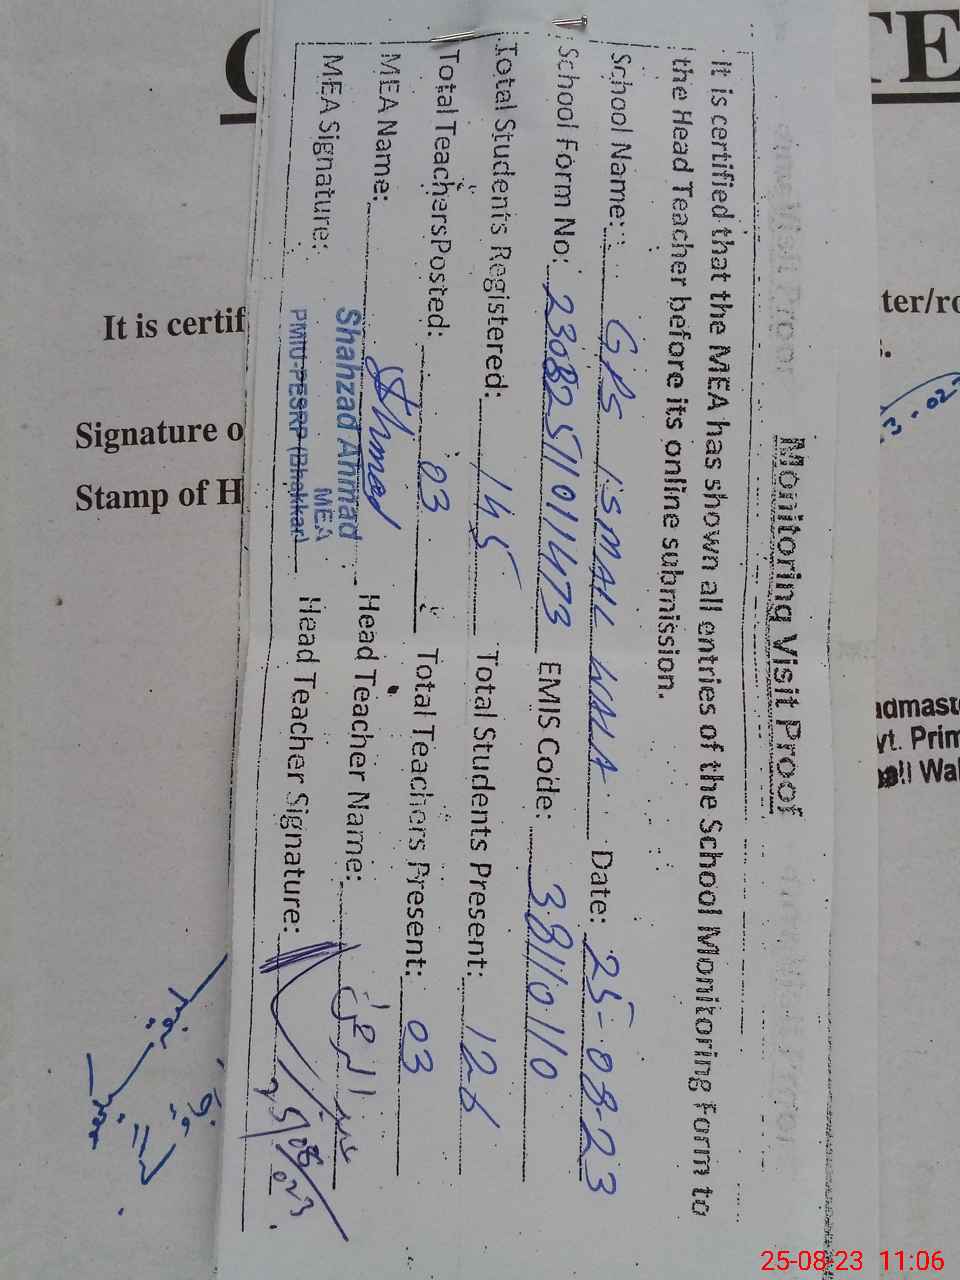 Monitoring Visit Proof
It is certified that the MEA has shown all entries of the School Monitoring Form to
the Head Teacher before its online submission.
School Name: GPS ISMAIL WALA Date: 25-08-23
School Form No: 23082511011473 EMIS Code: 38110110
Total Students Registered: 145 Total Students Present:
Total Teachers Posted: 03 Total Teachers Present: 03
MEA Name: Ahmad Head Teacher Name:
MEA Signature: Head Teacher Signature: 25/08/023
Shahzad Ahmad
MEA
PMIU-PESRP (Bhakkar)
It is certif
ter/ro
Signature o
Stamp of H
admaste
vt. Prim
Wal
TE
25-08-23 11:06